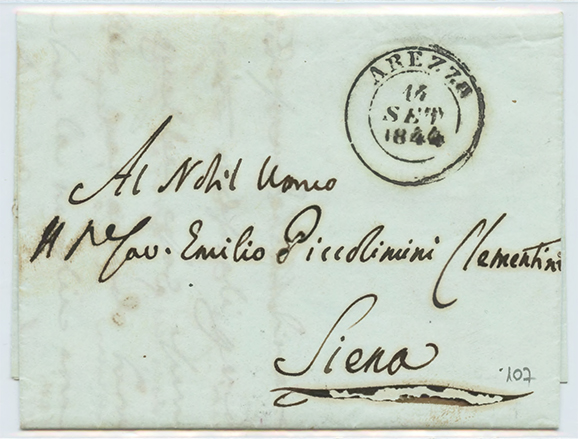 AREZZO
15
SET
1844
Al Nobil Uomo
Cav. Emilio Piccolimini Clementini
Siena
107